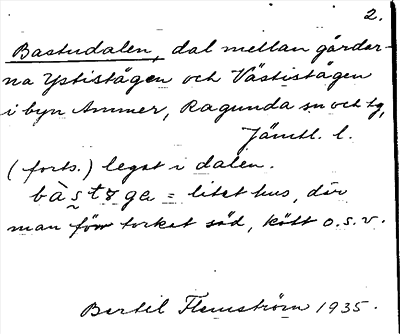 2.
Bastudalen, dal mellan gårdar-
na Ystistägen och Västistägen
i byn Ammer, Ragunda sn och tg,
Jämtl. l.
(forts.) legat i dalen.
= litet hus, där
man förr torkat säd, kött o.s.v.
Bertil Flemström 1935.